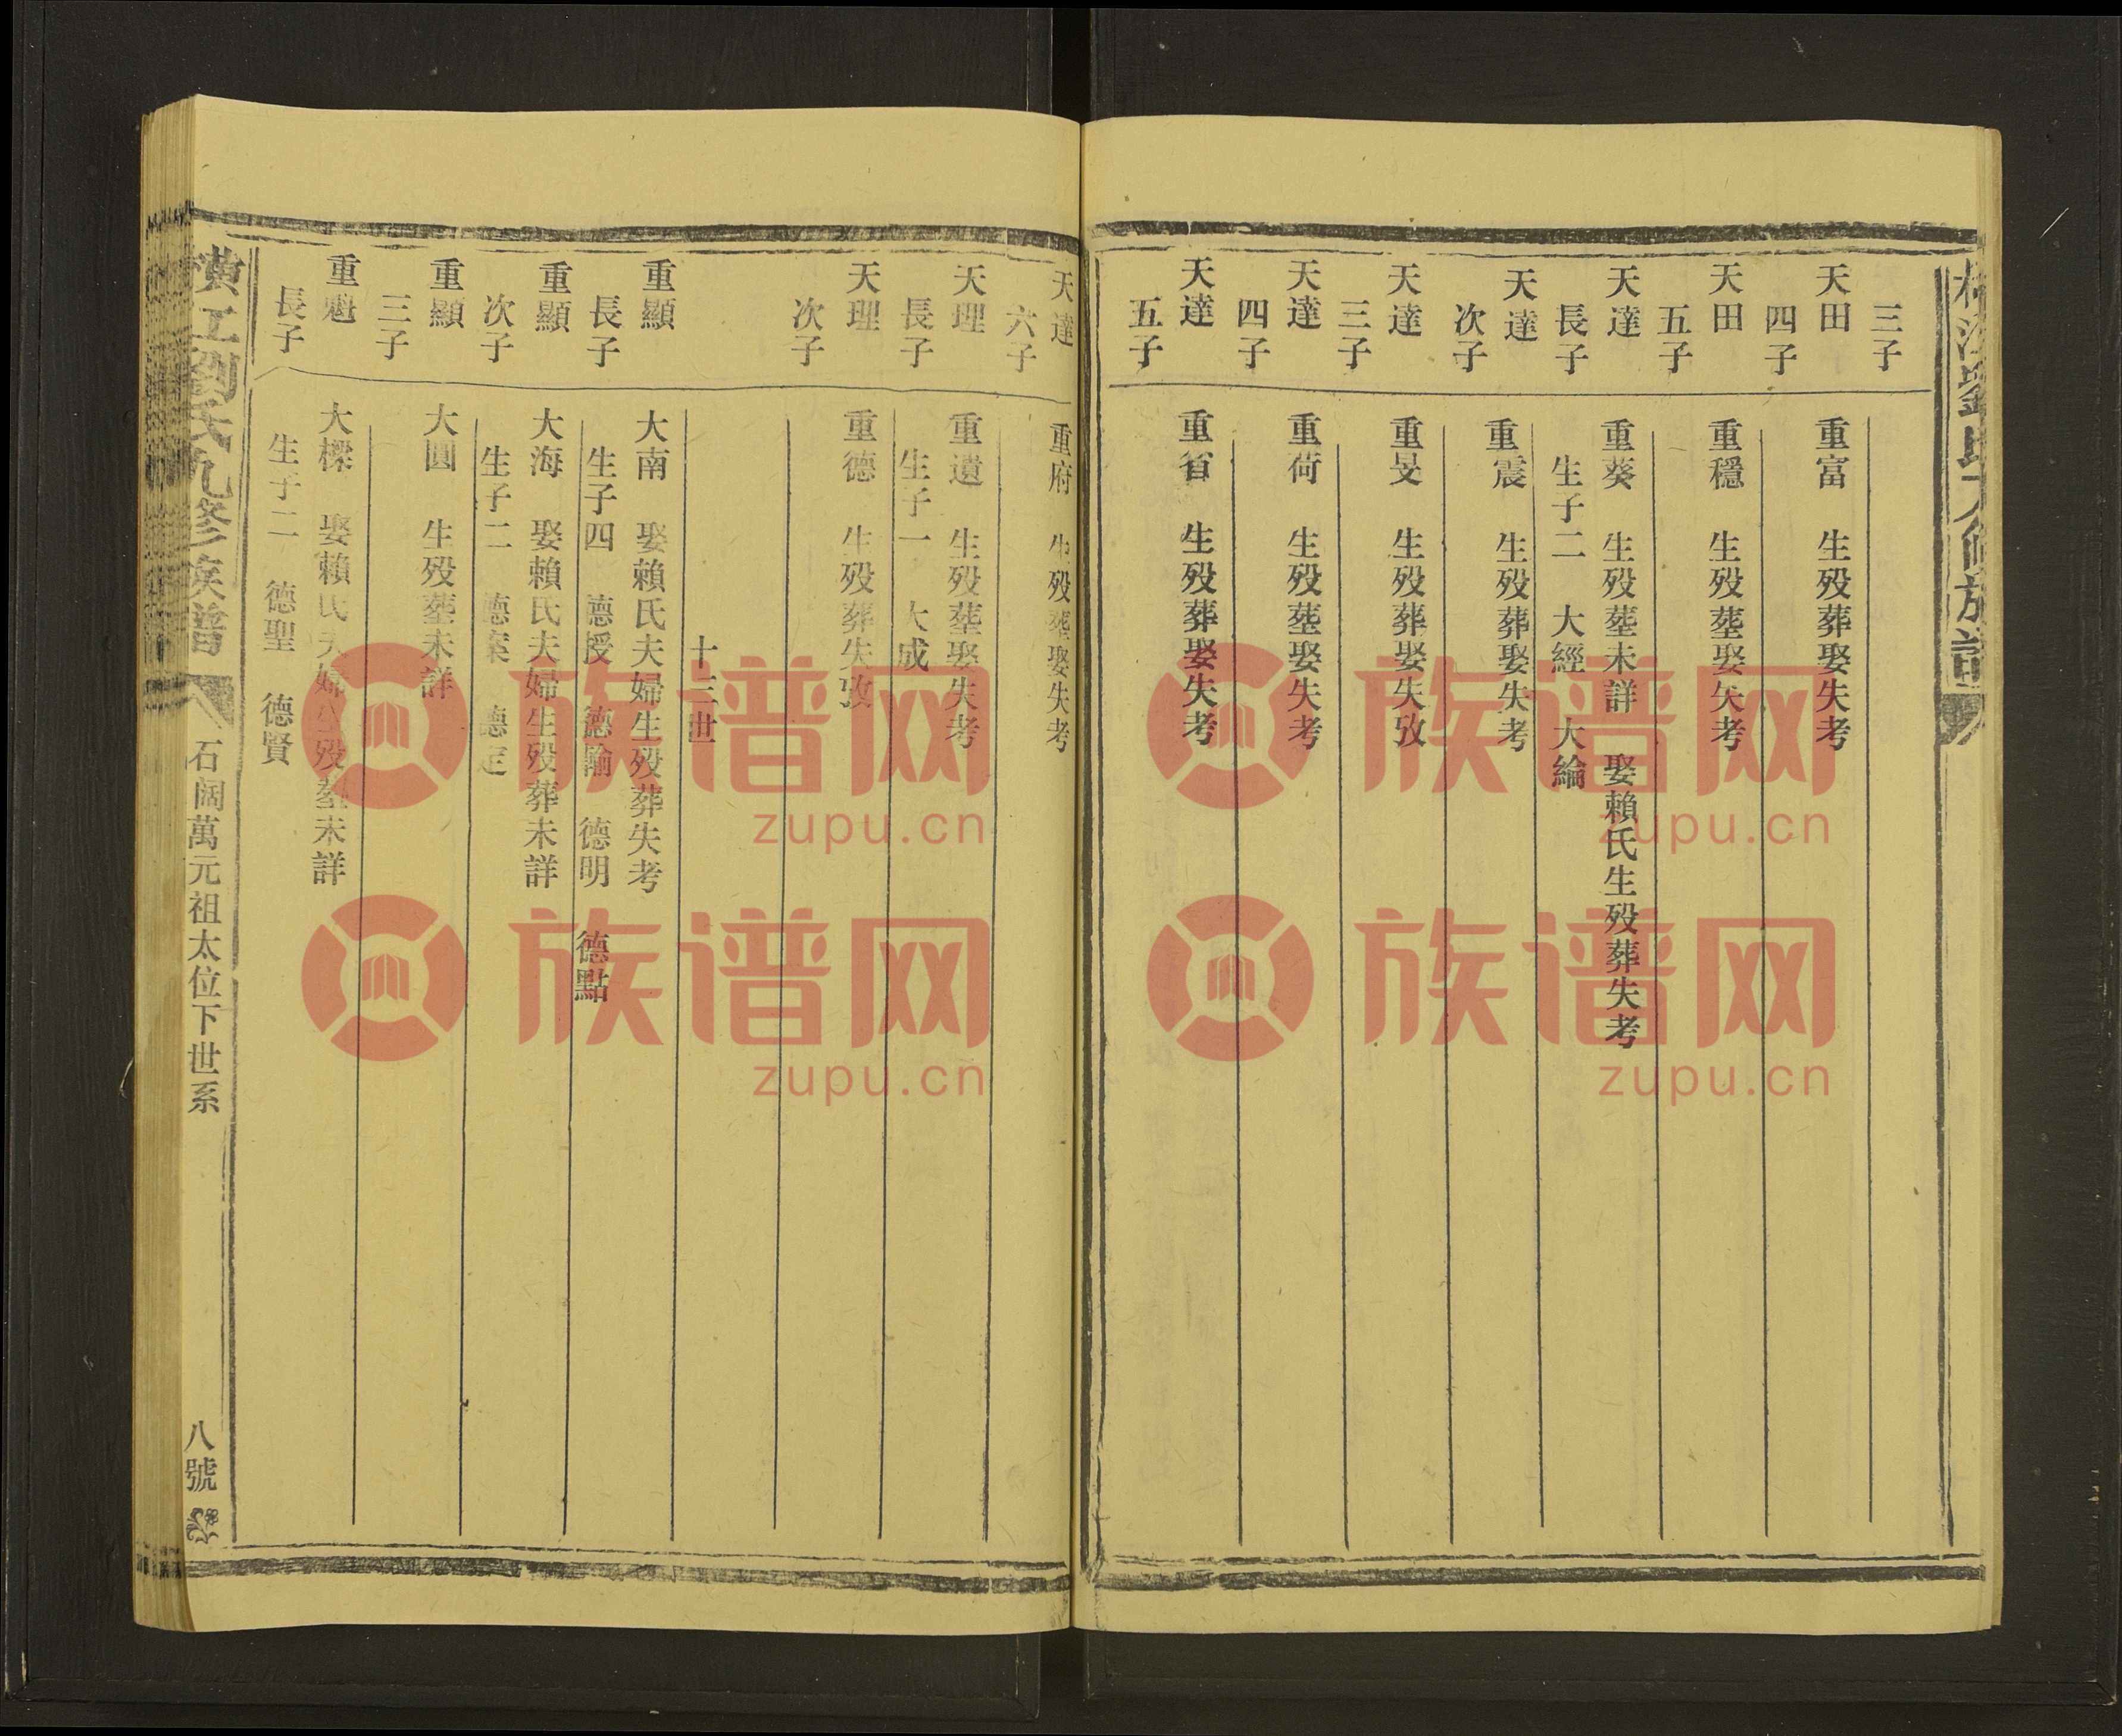 三子
天田
四子
重富 生歿葬娶失考
天田
五子
重穩 生歿塟娶失考
天達
長子
重葵 生歿塟未詳 娶賴氏生歿葬失考
生子二 大經 大綸
天達
次子
重震 生歿葬娶失考
天達
三子
重旻 生歿葬娶失攷
天達
四子
重荷 生歿塟娶失考
天達
五子
重省 生歿葬娶失考
天達
六子
重府 生歿塟娶失考
天理
長子
重遺 生歿塟娶失考
生子一 大成
天理
次子
重德 生歿葬失攷
十三世
重顯
長子
大南 娶賴氏夫婦生歿葬失考
生子四 德授 德諭 德明 德點
重顯
次子
大海 娶賴氏夫婦生歿葬未詳
生子二 德案 德定
重顯
三子
大圓 生歿塟未詳
重魁
長子
大樑 娶賴氏夫婦生歿塟未詳
生子二 德聖 德賢
橫江劉氏九修族譜
石阔萬元祖太位下世系
八號
族谱网
zupu.cn
族谱网
zupu.cn
族谱网
zupu.cn
族谱网
zupu.cn